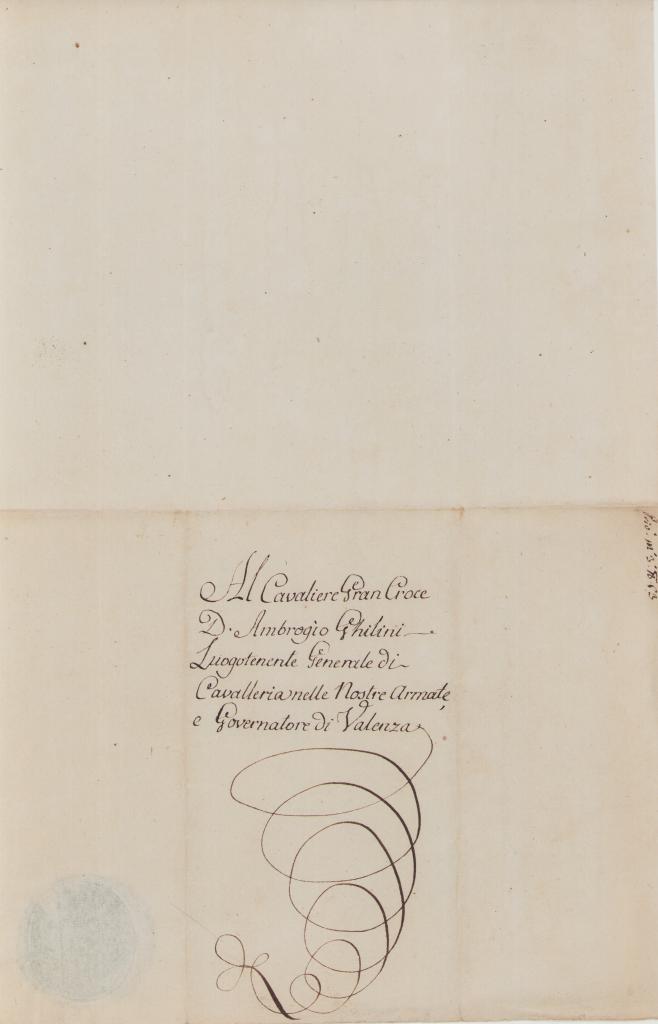 Al Cavaliere Gran Croce
D. Ambrogio Ghilini
Luogotenente Generale di
Cavalleria nelle Nostre Armate,
e Governatore di Valenza